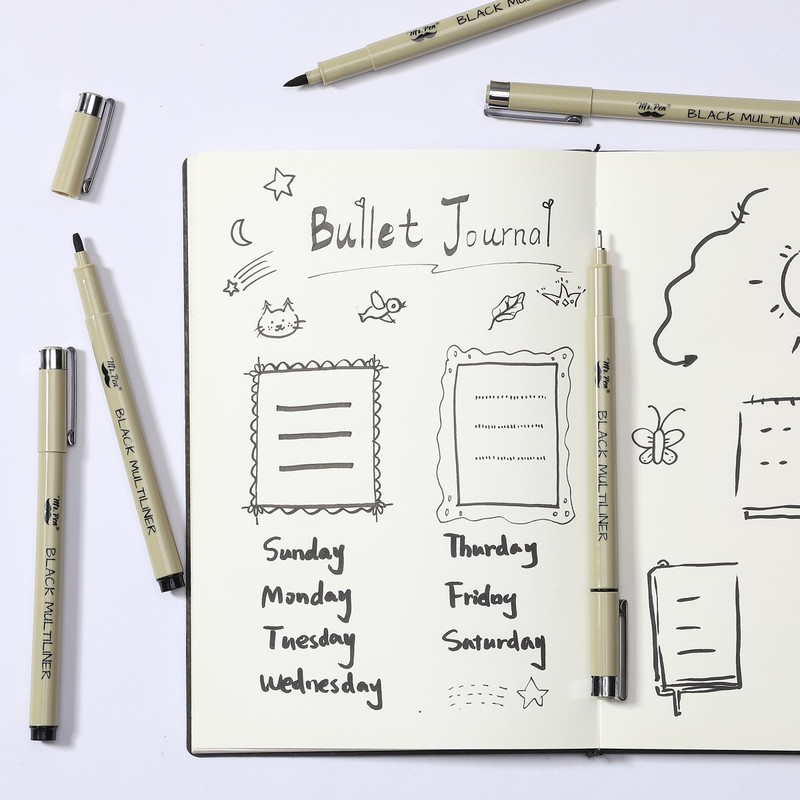 Mr. Pen® BLACK MU
Mr. Pen® BLACK MULTILIN
Bullet Journal
Mr. Pen® BLACK MULTILINER
Mr. Pen® BLACK MULTILINER
Mr. Pen® BLACK MULTILINER
Sunday
Monday
Tuesday
Wednesday
Thurday
Friday
Saturday